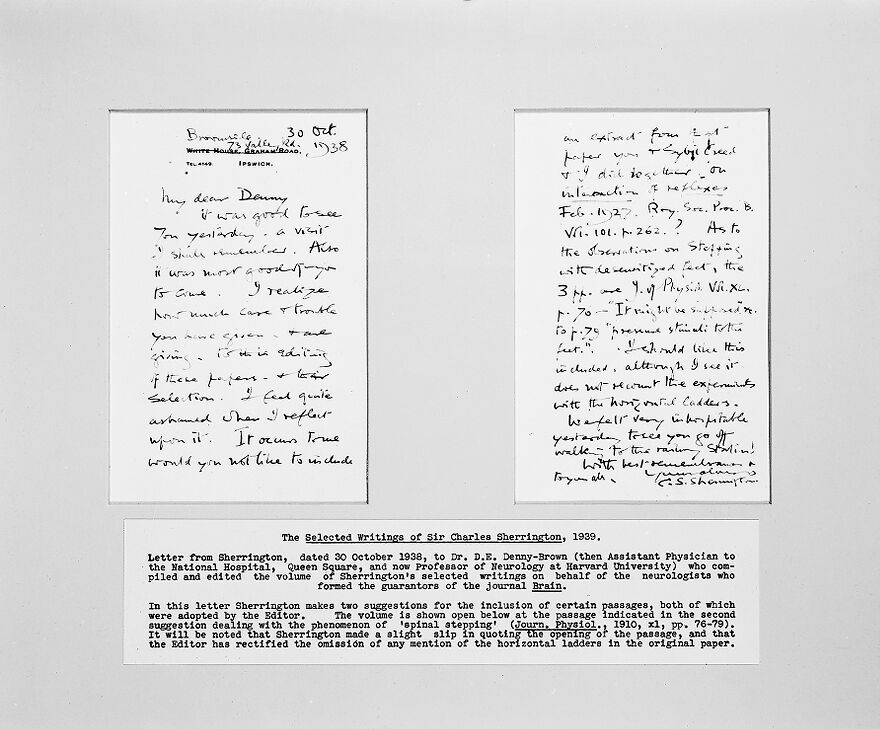 30 Oct.
73 Valley Rd. 1938
WHITE HOUSE, GRAHAM ROAD,
TEL. 4149. IPSWICH.
My dear Denny
it was good to see
you yesterday. a visit
I shall remember. Also
it was most good of you
to come. I realize
how much care & trouble
you have given, & are
giving, to the editing
of these papers - & their
selection. I feel quite
ashamed when I reflect
upon it. It occurs to me
would you not like to include
an extract from that
paper you & Sybil Creed
& I did together on
interaction of reflexes
Feb. 1927. Roy. Soc. Proc. B.
Vol. 101. p. 262.? As to
the observations on Stepping
with desensitized feet, the
3 pp. are J. of Physiol. Vol. XL.
p. 70 - "It might be supposed" etc.
to p. 79 "pressure stimuli to the
feet." I should like this
included, although I see it
does not recount the experiments
with the horizontal ladders.
We felt very inhospitable
yesterday to see you go off
walking to the railway station!
With best remembrances
to you all,
C. S. Sherrington
The Selected Writings of Sir Charles Sherrington, 1939.
Letter from Sherrington, dated 30 October 1938, to Dr. D.E. Denny-Brown (then Assistant Physician to
the National Hospital, Queen Square, and now Professor of Neurology at Harvard University) who com-
piled and edited the volume of Sherrington's selected writings on behalf of the neurologists who
formed the guarantors of the journal Brain.
In this letter Sherrington makes two suggestions for the inclusion of certain passages, both of which
were adopted by the Editor. The volume is shown open below at the passage indicated in the second
suggestion dealing with the phenomenon of 'spinal stepping' (Journ. Physiol., 1910, xl, pp. 76-79).
It will be noted that Sherrington made a slight slip in quoting the opening of the passage, and that
the Editor has rectified the omission of any mention of the horizontal ladders in the original paper.